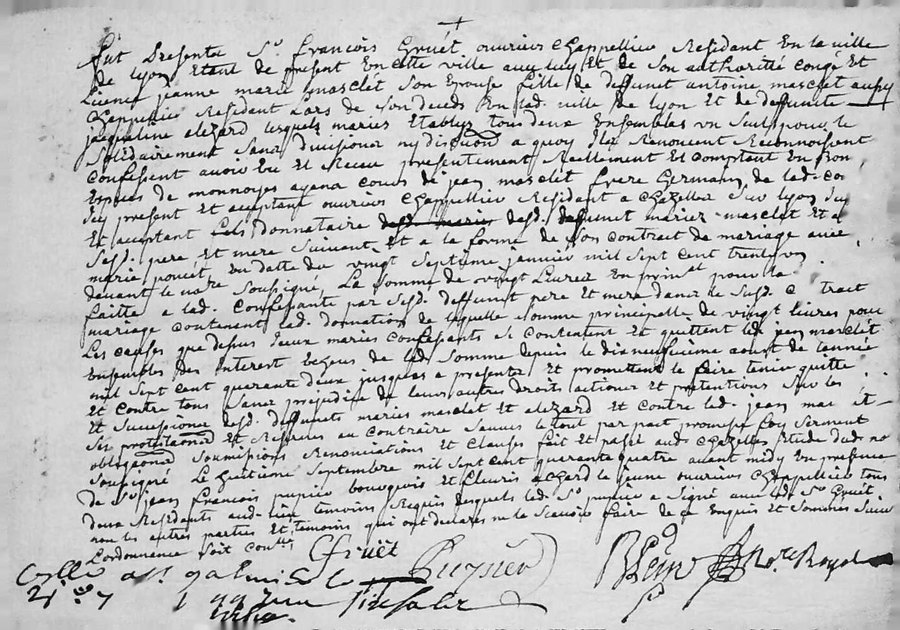 fut Presente Sr. francois Gruét ouvriers Chappellier Residant En la ville
de lyon Etant de present En cette ville avec luy Et de Son authorité congé Et
Licence jeanne marie masclet Son Epouse fille de deffunct antoine masclet aussy
Chappellier Residant Lors de Son deceds En lad. ville de lyon Et de deffunte
jacqueline alezard lesquels mariés Etablys tous deux Ensembles un Seul pour le
Solidairement Sans divisions ny discution a quoy Ilz Renoncent Reconnoissent
confessent avoir Eu Et Receu presentement Reellement Et Comptant En Bon
Especes de monnoyes ayans cours de jean masclet frere Germain de lad. co
Icy present Et acceptant ouvriers Chappellier Residant a Chazelles Sur lyon Icy
Et acceptant donnataire desd. deffunct mariez masclet Et a
Sesd. pere Et mere Suivant Et a la forme de Son contrat de mariage avec
marie poncet En datte du vingt Septieme janvier mil Sept cent trente
devant le notre Soussigné, La Somme de vingt Livres En prin.al pour la
faitte a lad. Confessante par Sesd. deffunct pere Et mere dans le Susd. C trait
mariage contenant lad. donnation de laquelle Somme principalle de vingt livres pour
Les causes que dessus Iceux mariés confessants Se Contentent Et quittent led. jean masclet
Ensembles des Interest Echeus de lad. Somme depuis le dixneufvieme aoust de l'année
mil Sept cent quarante deux jusques a present Et promettent le faire tenir quitte
Et contre tous Sans prejudice de leurs autres droits actions Et pretentions Sur les
Et Successions desd. deffuncts mariés masclet Et alezard Et contre led. jean mas
Ses protestations Et Reserves au contraire Sauves le tout par pact promesse foy Serment
obligations Soumissions Renonciations Et Clauses fait Et passé aud. Chazelles Etude dud. no
Soussigné Le huitieme Septembre mil Sept cent quarante quatre avant midy En presence
de Sr. jean francois pupier bourgeois Et fleuris achard le jeune ouvriers Chappellier tous
deux Residants aud. lieu temoins Requis desquels led. Sr. pupier a Signé avec led. Sr. Gruét
non les autres parties Et temoins qui ont declarés ne le Scavoir faire de ce Enquis Et Sommés Suiv
Lordonnance Soit con.llé
Gruët
not.re Royal